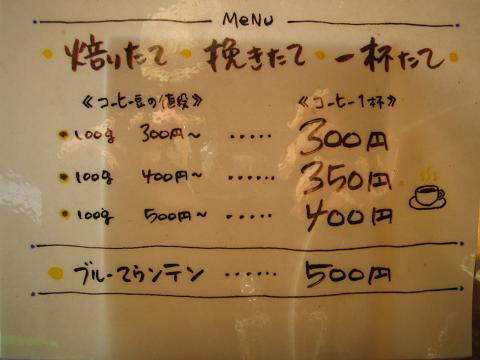 MeNu
焙りたて・挽きたて・一杯たて
《コーヒー豆の値段》 《コーヒー1杯》
100g 300円～ ‥‥‥ 300円
100g 400円～ ‥‥‥ 350円
100g 500円～ ‥‥‥ 400円
ブルーマウンテン ‥‥‥ 500円